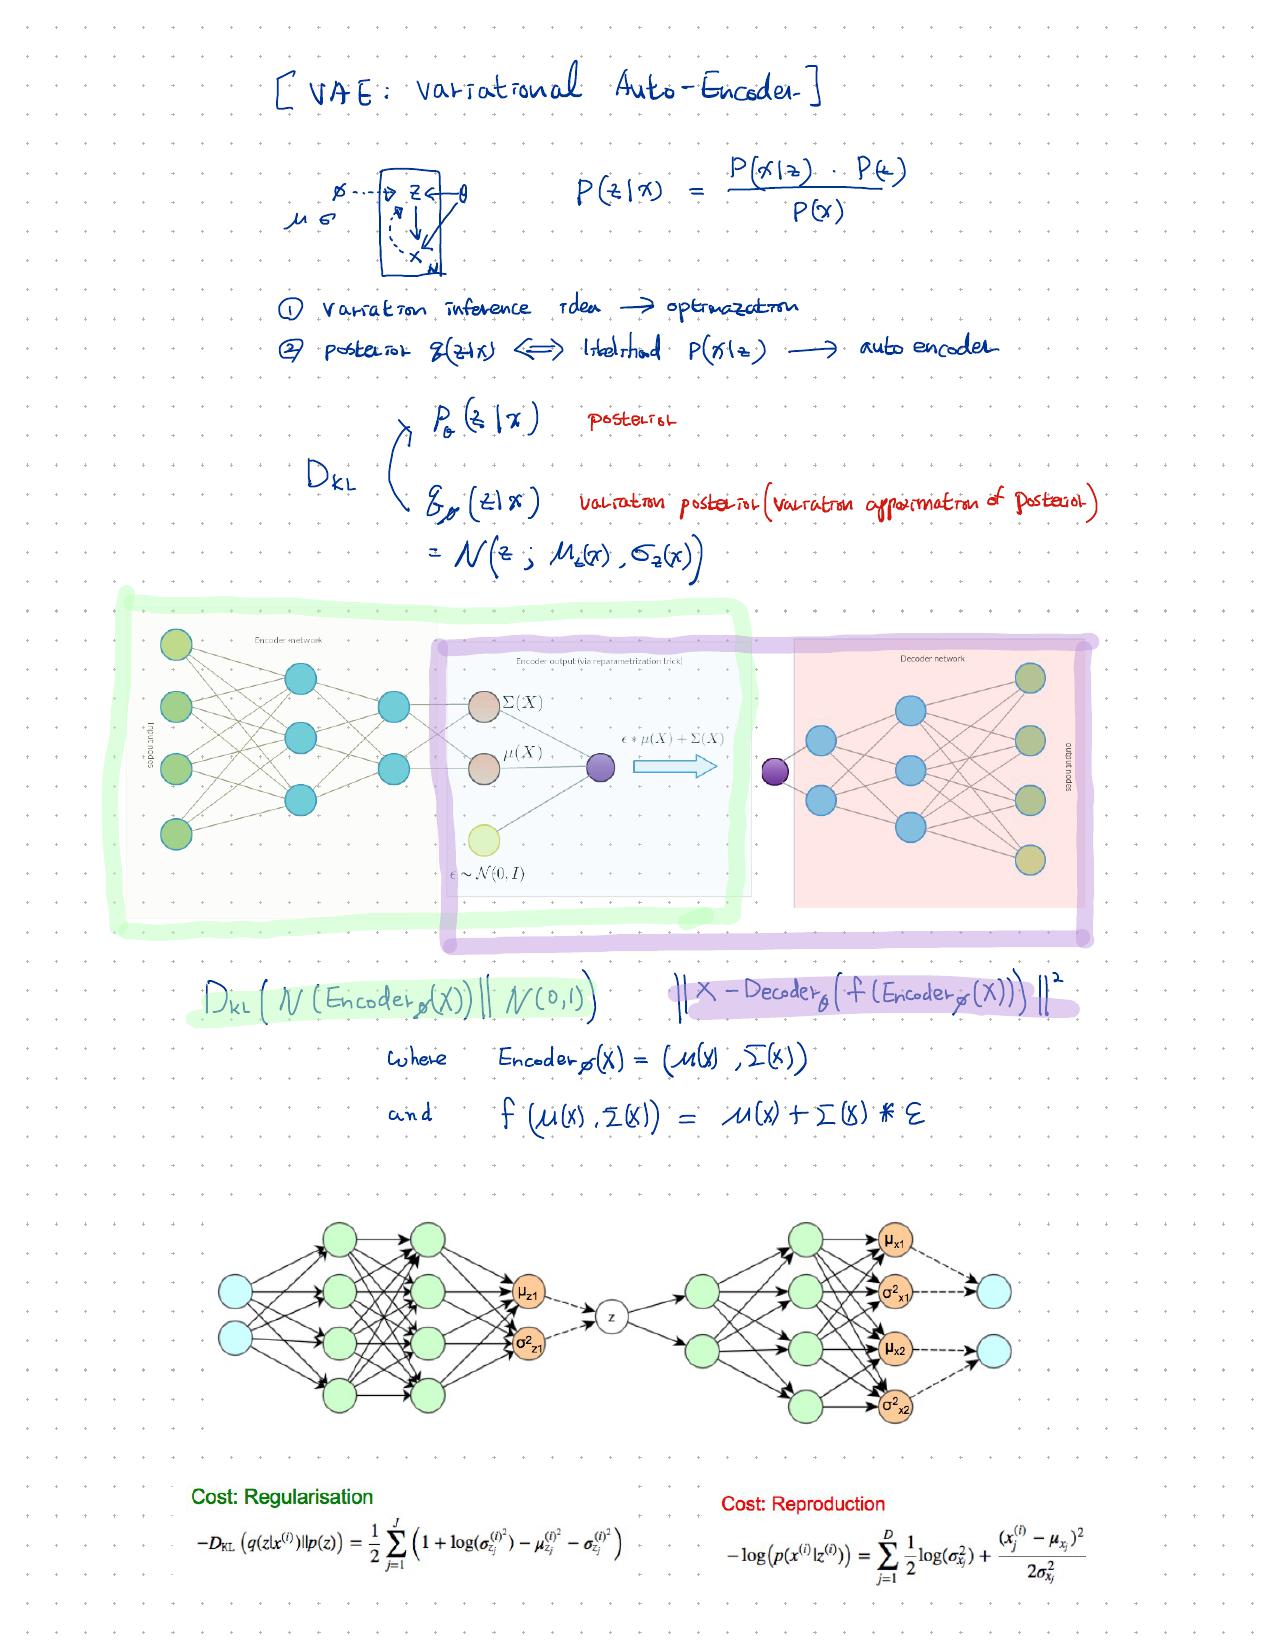 [ VAE: Variational Auto-Encoder ]
P(z|x) = P(x|z) · P(z) / P(x)
ø z θ
μ σ
x N
① variation inference idea → optimazation
② posterior q(z|x) ⟺ likelihood p(x|z) → auto encoder
P_θ(z|x) posterior
D_KL
q_ø(z|x) variation posterior (variation approximation of Posterior)
= N(z ; μ_z(x), σ_z(x))
Encoder network
Encoder output (via reparametrization trick)
Decoder network
Input nodes
Σ(X)
μ(X)
ϵ * μ(X) + Σ(X)
output nodes
ϵ ~ N(0, I)
D_KL( N(Encoder_ø(X)) || N(0,1) )
|| X - Decoder_θ(f(Encoder_ø(X))) ||²
where Encoder_ø(X) = (μ(x), Σ(x))
and f(μ(x), Σ(x)) = μ(x) + Σ(x) * ε
μx1
μz1
σ²x1
z
σ²z1
μx2
σ²x2
Cost: Regularisation
-D_KL (q(z|x^(i))||p(z)) = 1/2 Σ_{j=1}^{J} (1 + log(σ_{z_j}^{(i)²}) − μ_{z_j}^{(i)²} − σ_{z_j}^{(i)²})
Cost: Reproduction
−log(p(x^(i)|z^(i))) = Σ_{j=1}^{D} 1/2 log(σ²_{x_j}) + (x_j^(i) − μ_{x_j})² / 2σ²_{x_j}